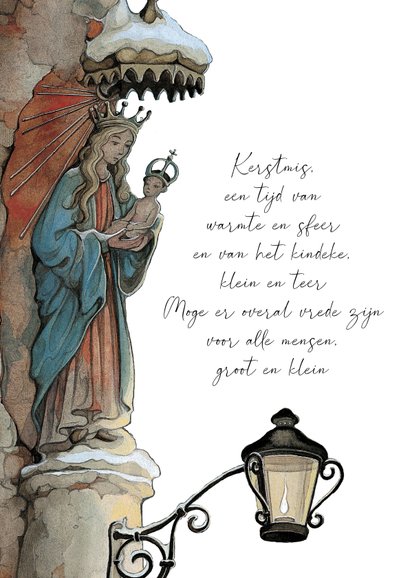 Kerstmis,
een tijd van
warmte en sfeer
en van het kindeke,
klein en teer
Moge er overal vrede zijn
voor alle mensen,
groot en klein